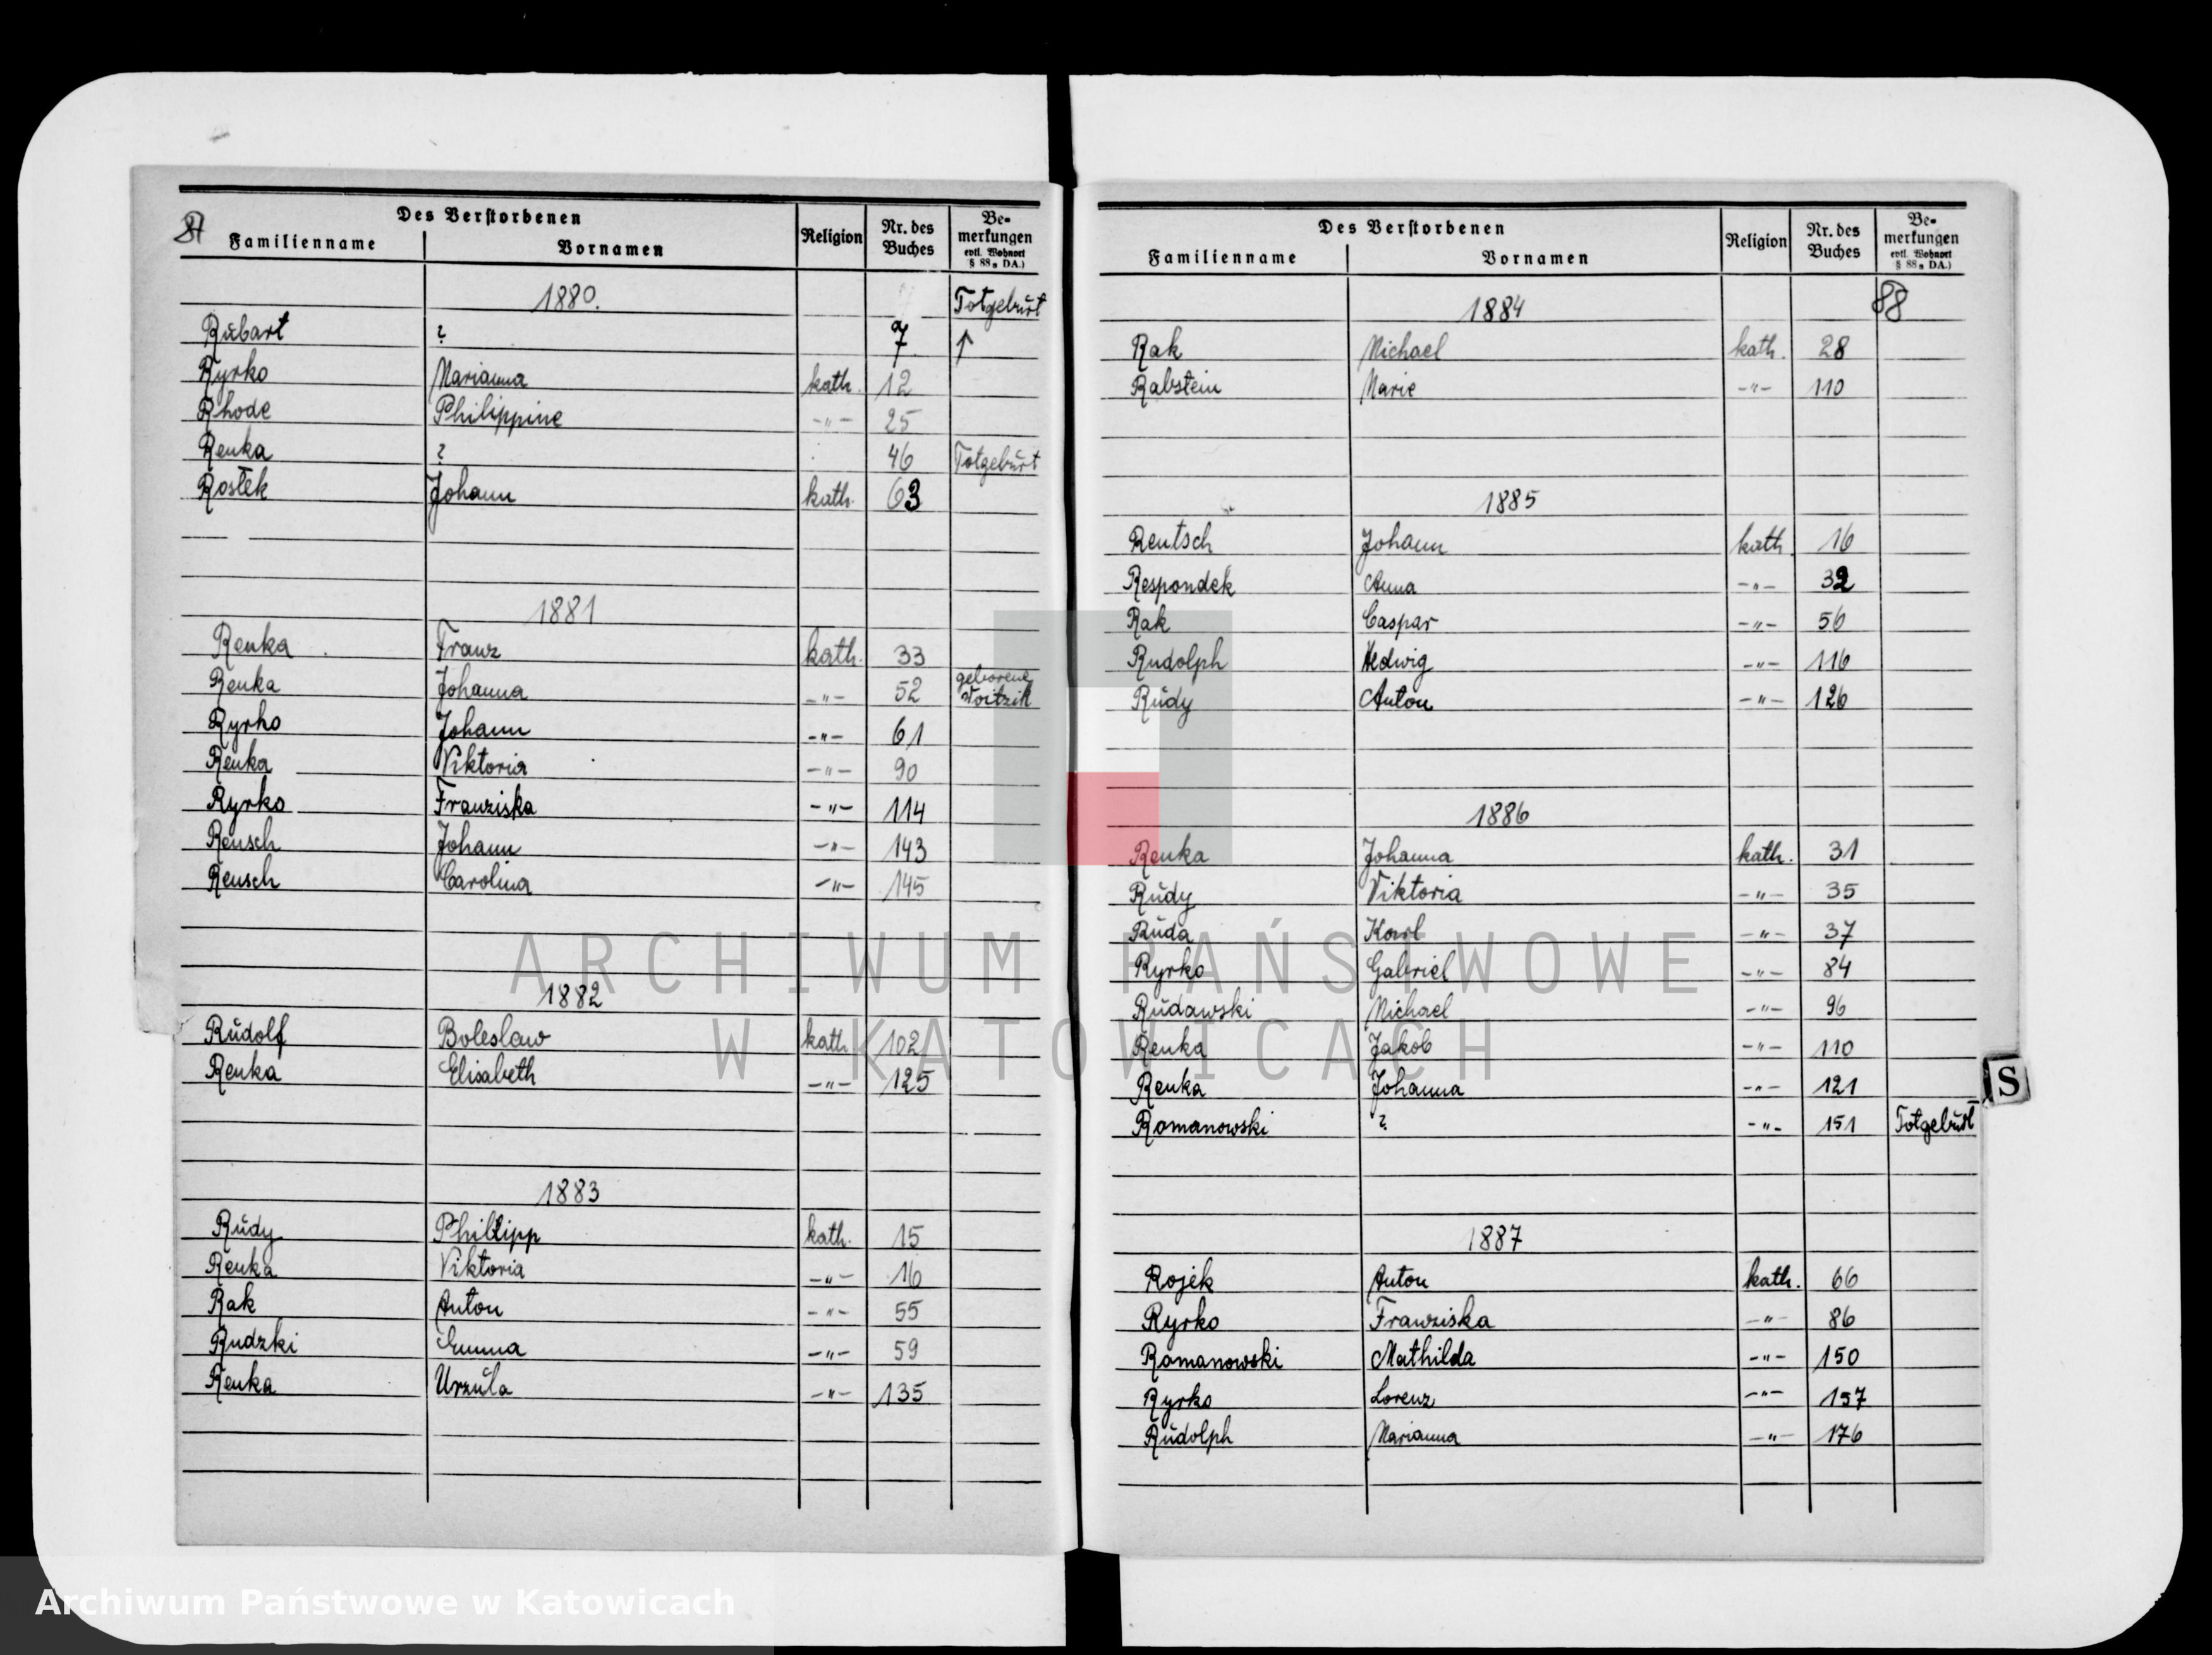 87
Des Verstorbenen
Familienname Vornamen Religion Nr. des Buches Bemerkungen evtl. Wohnort § 88a DA.)
1880.
Totgeburt
Rŭbart ? 7 ↑
Ryrko Marianna kath. 12
Rhode Philippine -"- 25
Renka ? 46 Totgebŭrt
Rostek Johann kath. 63
1881
Renka Franz kath. 33
Renka Johanna -"- 52 geborene Woitzik
Ryrko Johann -"- 61
Renka Viktoria -"- 90
Ryrko Franziska -"- 114
Reusch Johann -"- 143
Reusch Carolina -"- 145
1882
Rŭdolf Boleslaw kath. 102
Renka Elisabeth -"- 125
1883
Rŭdy Phillipp kath. 15
Renka Viktoria -"- 16
Rak Anton -"- 55
Rudzki Emma -"- 59
Renka Urzŭla -"- 135
Des Verstorbenen
Familienname Vornamen Religion Nr. des Buches Bemerkungen evtl. Wohnort § 88a DA.)
1884
88
Rak Michael kath. 28
Rabstein Marie -"- 110
1885
Rentsch Johann kath. 16
Respondek Anna -"- 32
Rak Caspar -"- 56
Rudolph Hedwig -"- 116
Rŭdy Anton -"- 126
1886
Renka Johanna kath. 31
Rŭdy Viktoria -"- 35
Rŭda Karl -"- 37
Ryrko Gabriel -"- 84
Rŭdawski Michael -"- 96
Renka Jakob -"- 110
Renka Johanna -"- 121
Romanowski ? -"- 151 Totgebŭrt
1887
Rojek Anton kath. 66
Ryrko Franziska -"- 86
Romanowski Mathilda -"- 150
Ryrko Lorenz -"- 157
Rŭdolph Marianna -"- 176
S
ARCHIWUM PAŃSTWOWE
W KATOWICACH
Archiwum Państwowe w Katowicach